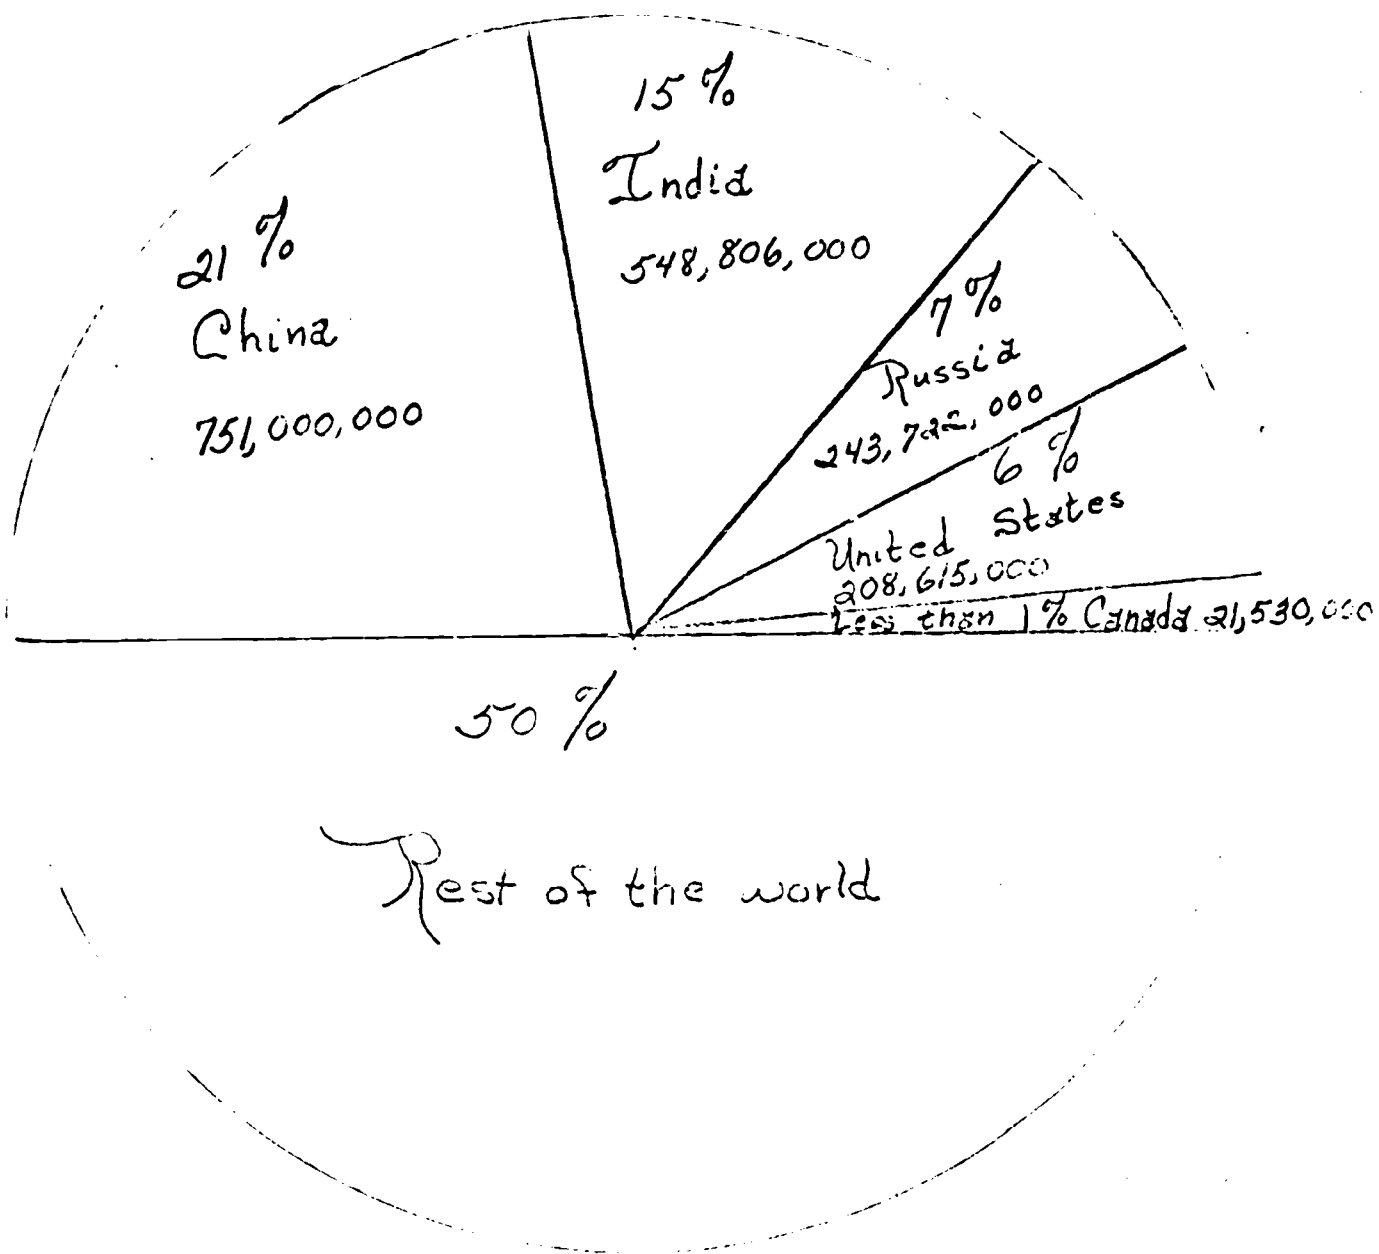 15 %
India
548,806,000
21 %
China
751,000,000
7 %
Russia
243,722,000
6 %
United States
208,615,000
Less than 1 % Canada 21,530,000
50 %
Rest of the world